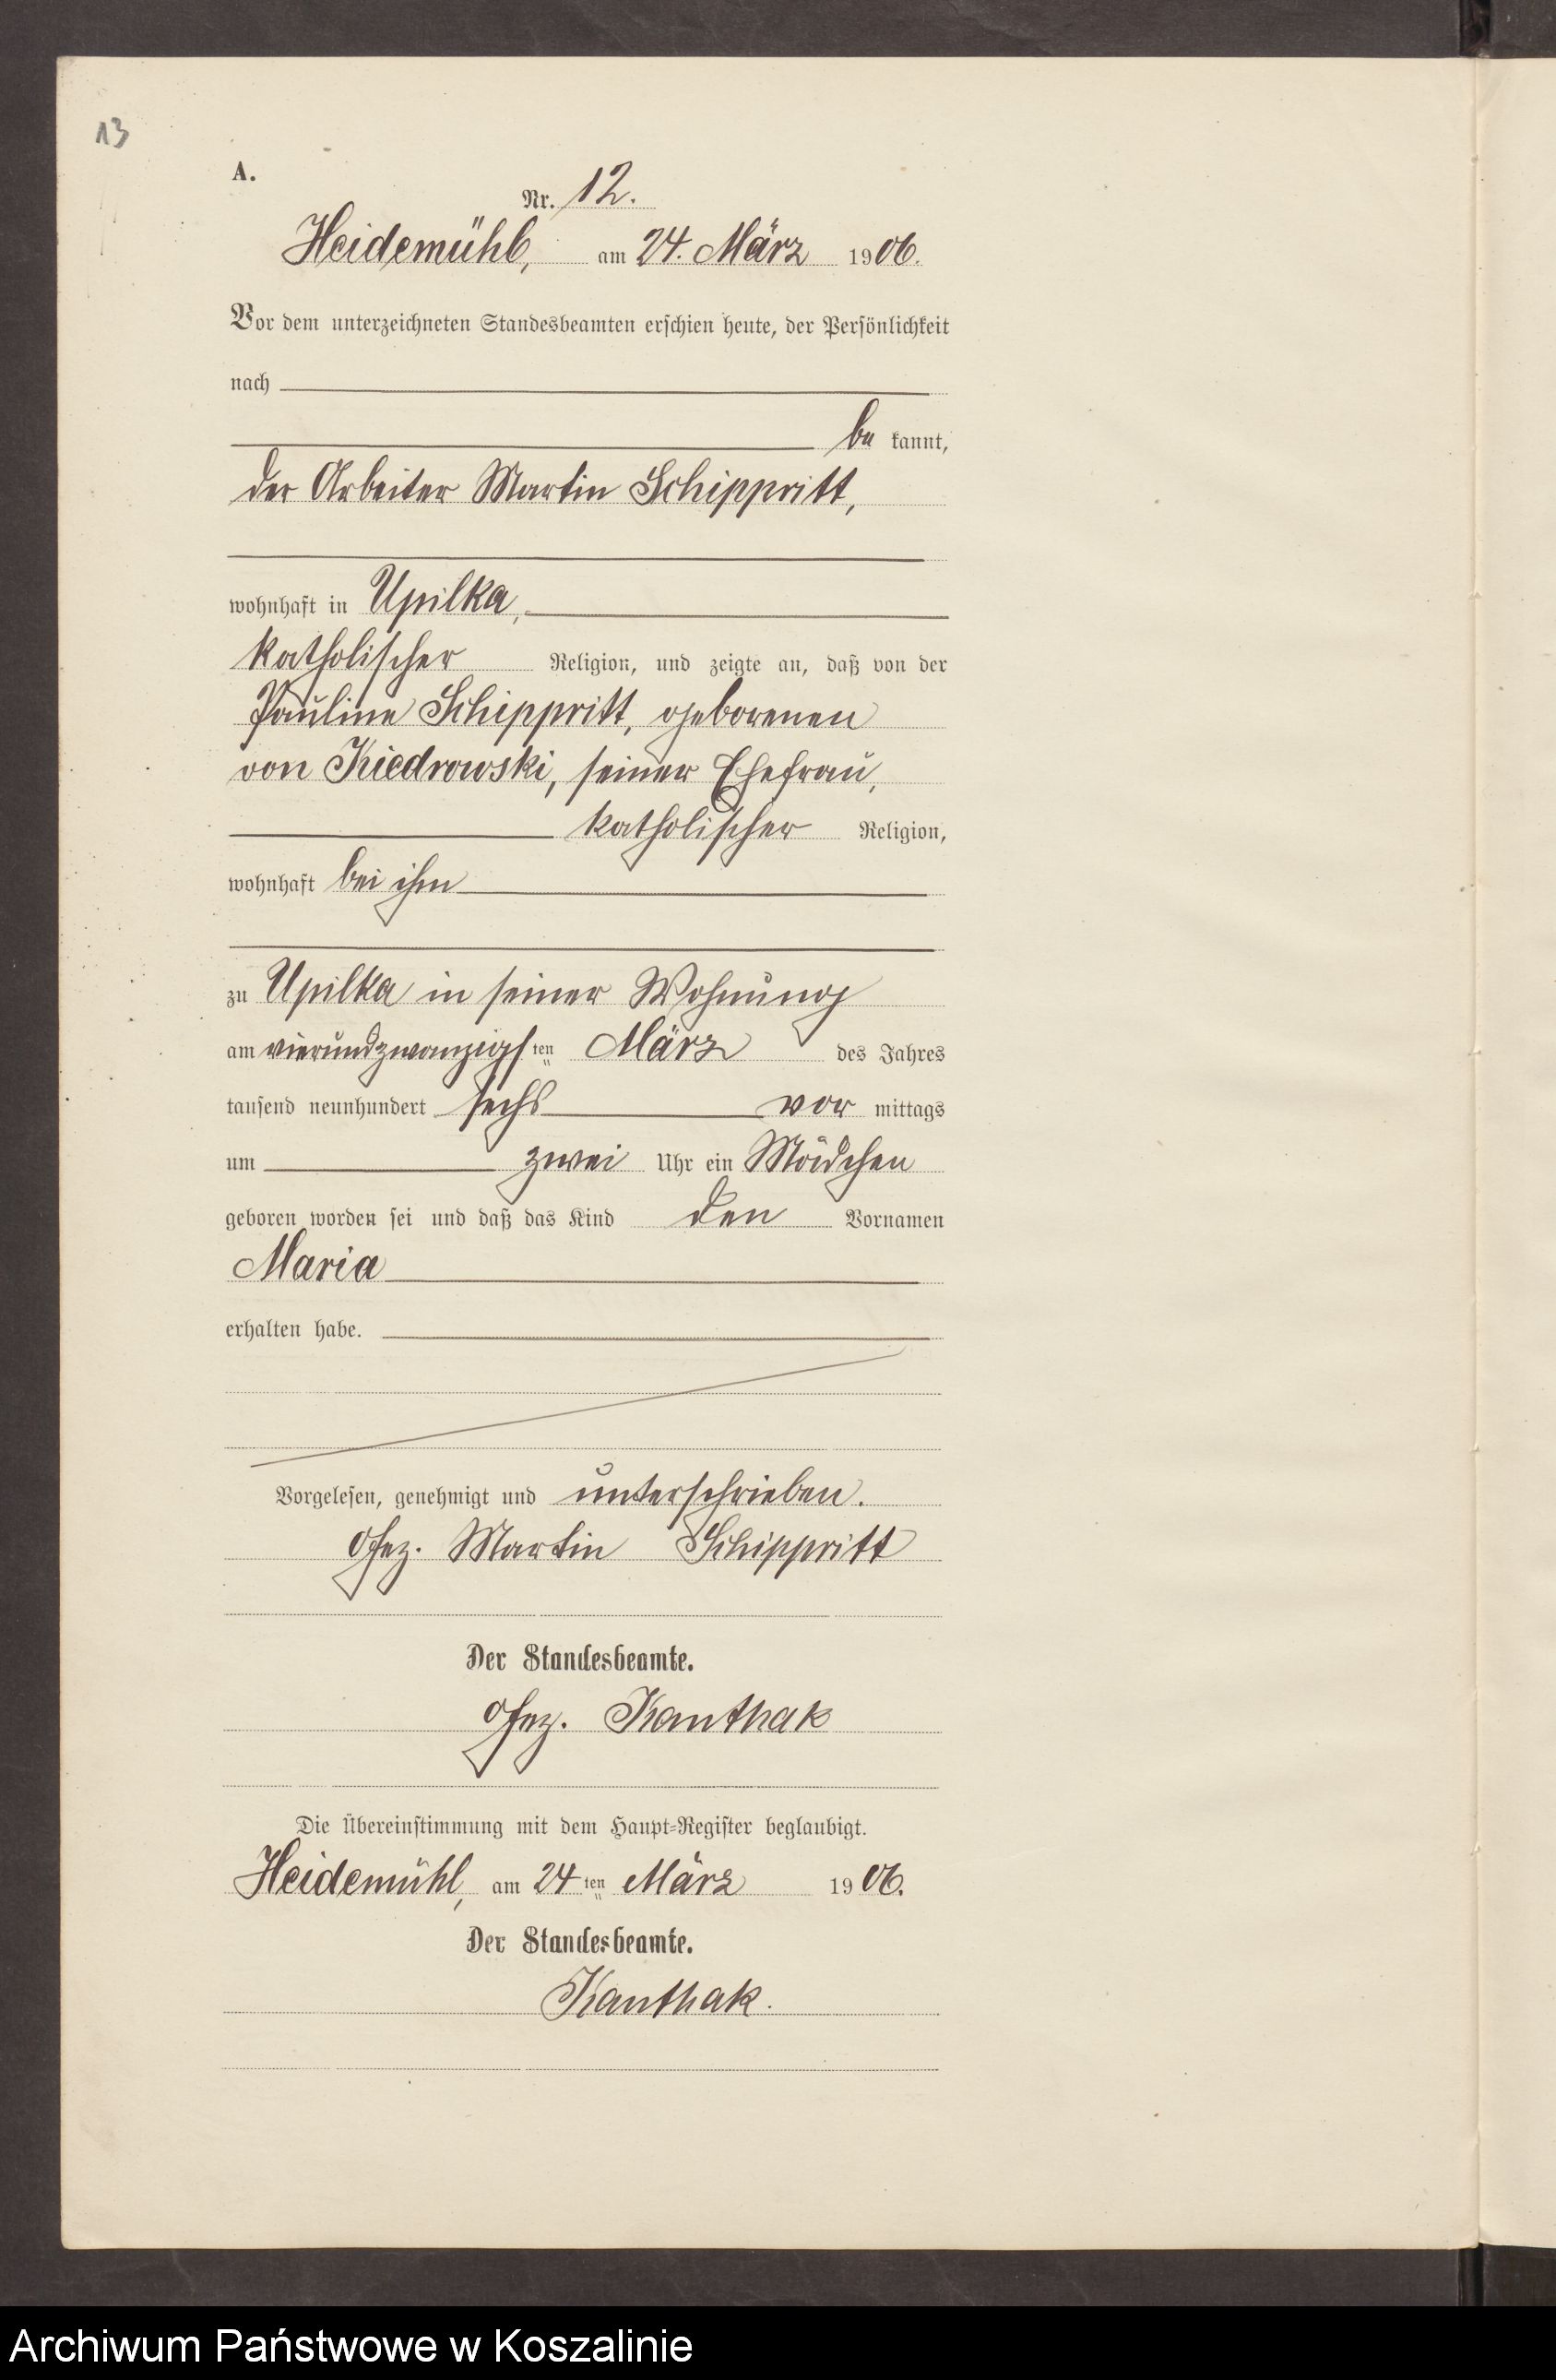 13
A.
Nr. 12.
Heidemühl, am 24. März 1906.
Vor dem unterzeichneten Standesbeamten erschien heute, der Persönlichkeit
nach
be kannt,
der Arbeiter Martin Schippritt,
wohnhaft in Upilka,
katholischer Religion, und zeigte an, daß von der
Pauline Schippritt, geborenen
von Kiedrowski, seiner Ehefrau,
katholischer Religion,
wohnhaft bei ihm
zu Upilka in seiner Wohnung
am vierundzwanzigsten März des Jahres
tausend neunhundert sechs vor mittags
um zwei Uhr ein Mädchen
geboren worden sei und daß das Kind den Vornamen
Maria
erhalten habe.
Vorgelesen, genehmigt und unterschrieben.
Gez. Martin Schippritt
Der Standesbeamte.
Gez. Kanthak
Die Übereinstimmung mit dem Haupt-Register beglaubigt.
Heidemühl, am 24ten März 1906.
Der Standesbeamte.
Kanthak.
Archiwum Państwowe w Koszalinie